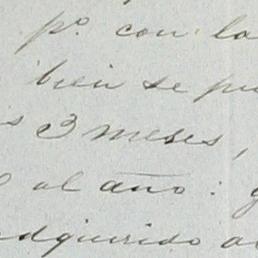 pº. con la
bien se
3 meses,
al año:
adquirido